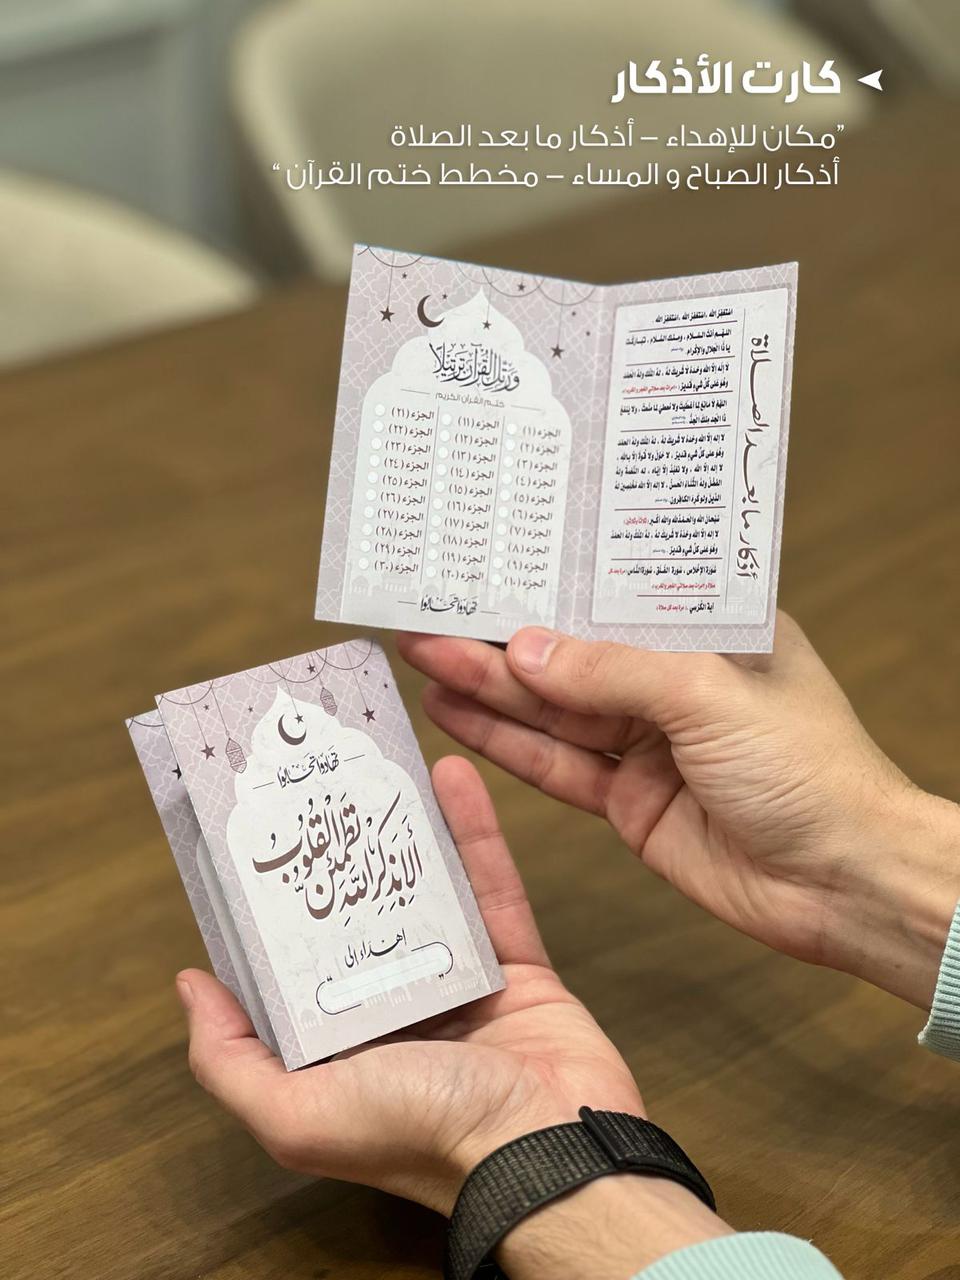 كارت الأذكار
"مكان للإهداء – أذكار ما بعد الصلاة
أذكار الصباح و المساء – مخطط ختم القرآن"
ورتل القرآن ترتيلا
ختم القرآن الكريم
الجزء (١)
الجزء (٢)
الجزء (٣)
الجزء (٤)
الجزء (٥)
الجزء (٦)
الجزء (٧)
الجزء (٨)
الجزء (٩)
الجزء (١٠)
الجزء (١١)
الجزء (١٢)
الجزء (١٣)
الجزء (١٤)
الجزء (١٥)
الجزء (١٦)
الجزء (١٧)
الجزء (١٨)
الجزء (١٩)
الجزء (٢٠)
الجزء (٢١)
الجزء (٢٢)
الجزء (٢٣)
الجزء (٢٤)
الجزء (٢٥)
الجزء (٢٦)
الجزء (٢٧)
الجزء (٢٨)
الجزء (٢٩)
الجزء (٣٠)
تهادوا تحابوا
أذكار ما بعد الصلاة
استغفر الله ، استغفر الله ، استغفر الله
اللهم أنت السلام ، ومنك السلام ، تباركت
يا ذا الجلال والإكرام
لا إله إلا الله وحده لا شريك له ، له الملك وله الحمد
وهو على كل شيء قدير
اللهم لا مانع لما أعطيت ولا معطي لما منعت ، ولا ينفع
ذا الجد منك الجد
لا إله إلا الله وحده لا شريك له ، له الملك وله الحمد
وهو على كل شيء قدير ، لا حول ولا قوة إلا بالله ،
لا إله إلا الله ، ولا نعبد إلا إياه ، له النعمة وله
الفضل وله الثناء الحسن ، لا إله إلا الله مخلصين له
الدين ولو كره الكافرون
سبحان الله والحمد لله والله أكبر (ثلاثا وثلاثين)
لا إله إلا الله وحده لا شريك له ، له الملك وله الحمد
وهو على كل شيء قدير
سورة الإخلاص ، سورة الفلق ، سورة الناس
آية الكرسي ، (مرة بعد كل صلاة)
تهادوا تحابوا
ألا بذكر الله تطمئن القلوب
اهداء الى